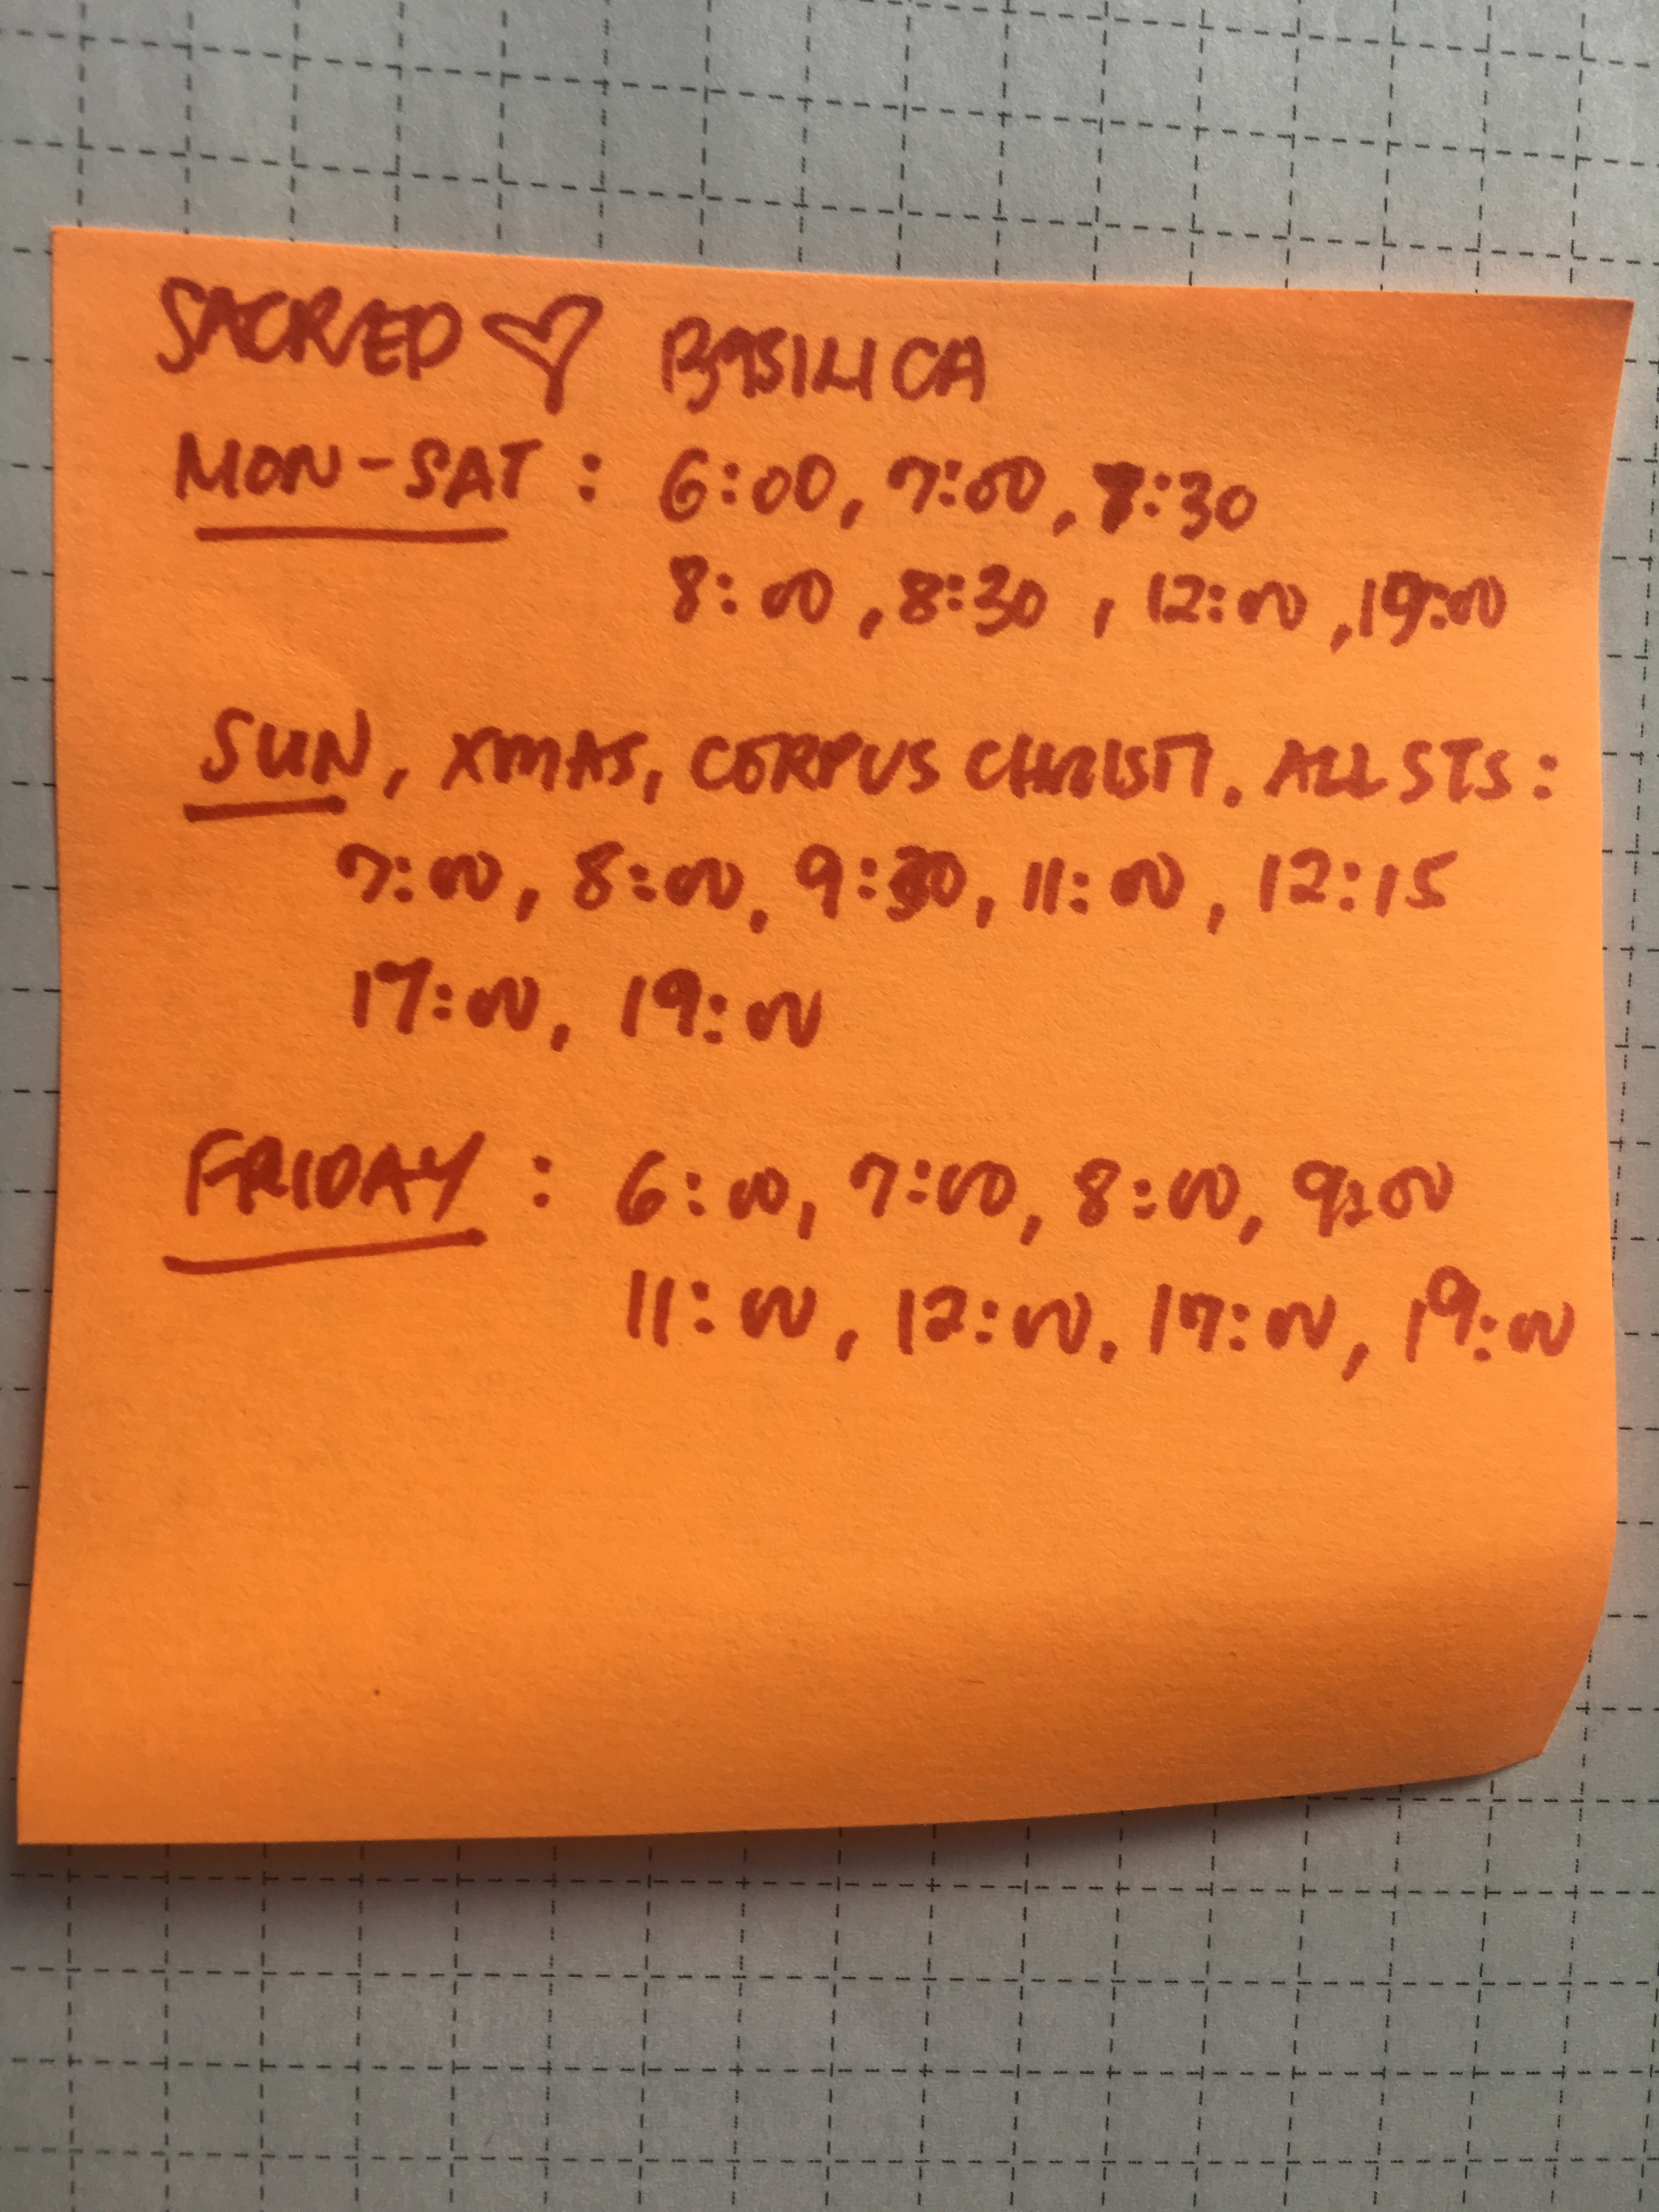 SACRED ♡ BASILICA
MON-SAT : 6:00, 7:00, 7:30
8:00, 8:30, 12:00, 19:00
SUN, XMAS, CORPUS CHRISTI. ALL STS:
7:00, 8:00, 9:30, 11:00, 12:15
17:00, 19:00
FRIDAY : 6:00, 7:00, 8:00, 9:00
11:00, 12:00, 17:00, 19:00